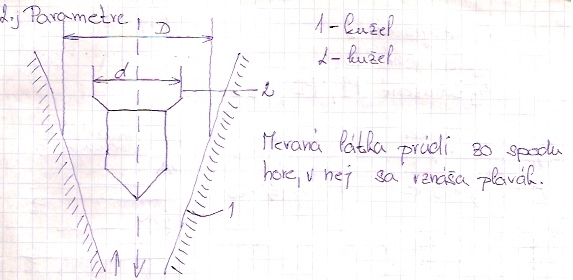 2.) Parametre
D
1-kužel
2-kužel
d
2
Meraná látka prúdi zo spodu
hore, v nej sa vznáša plavák.
1